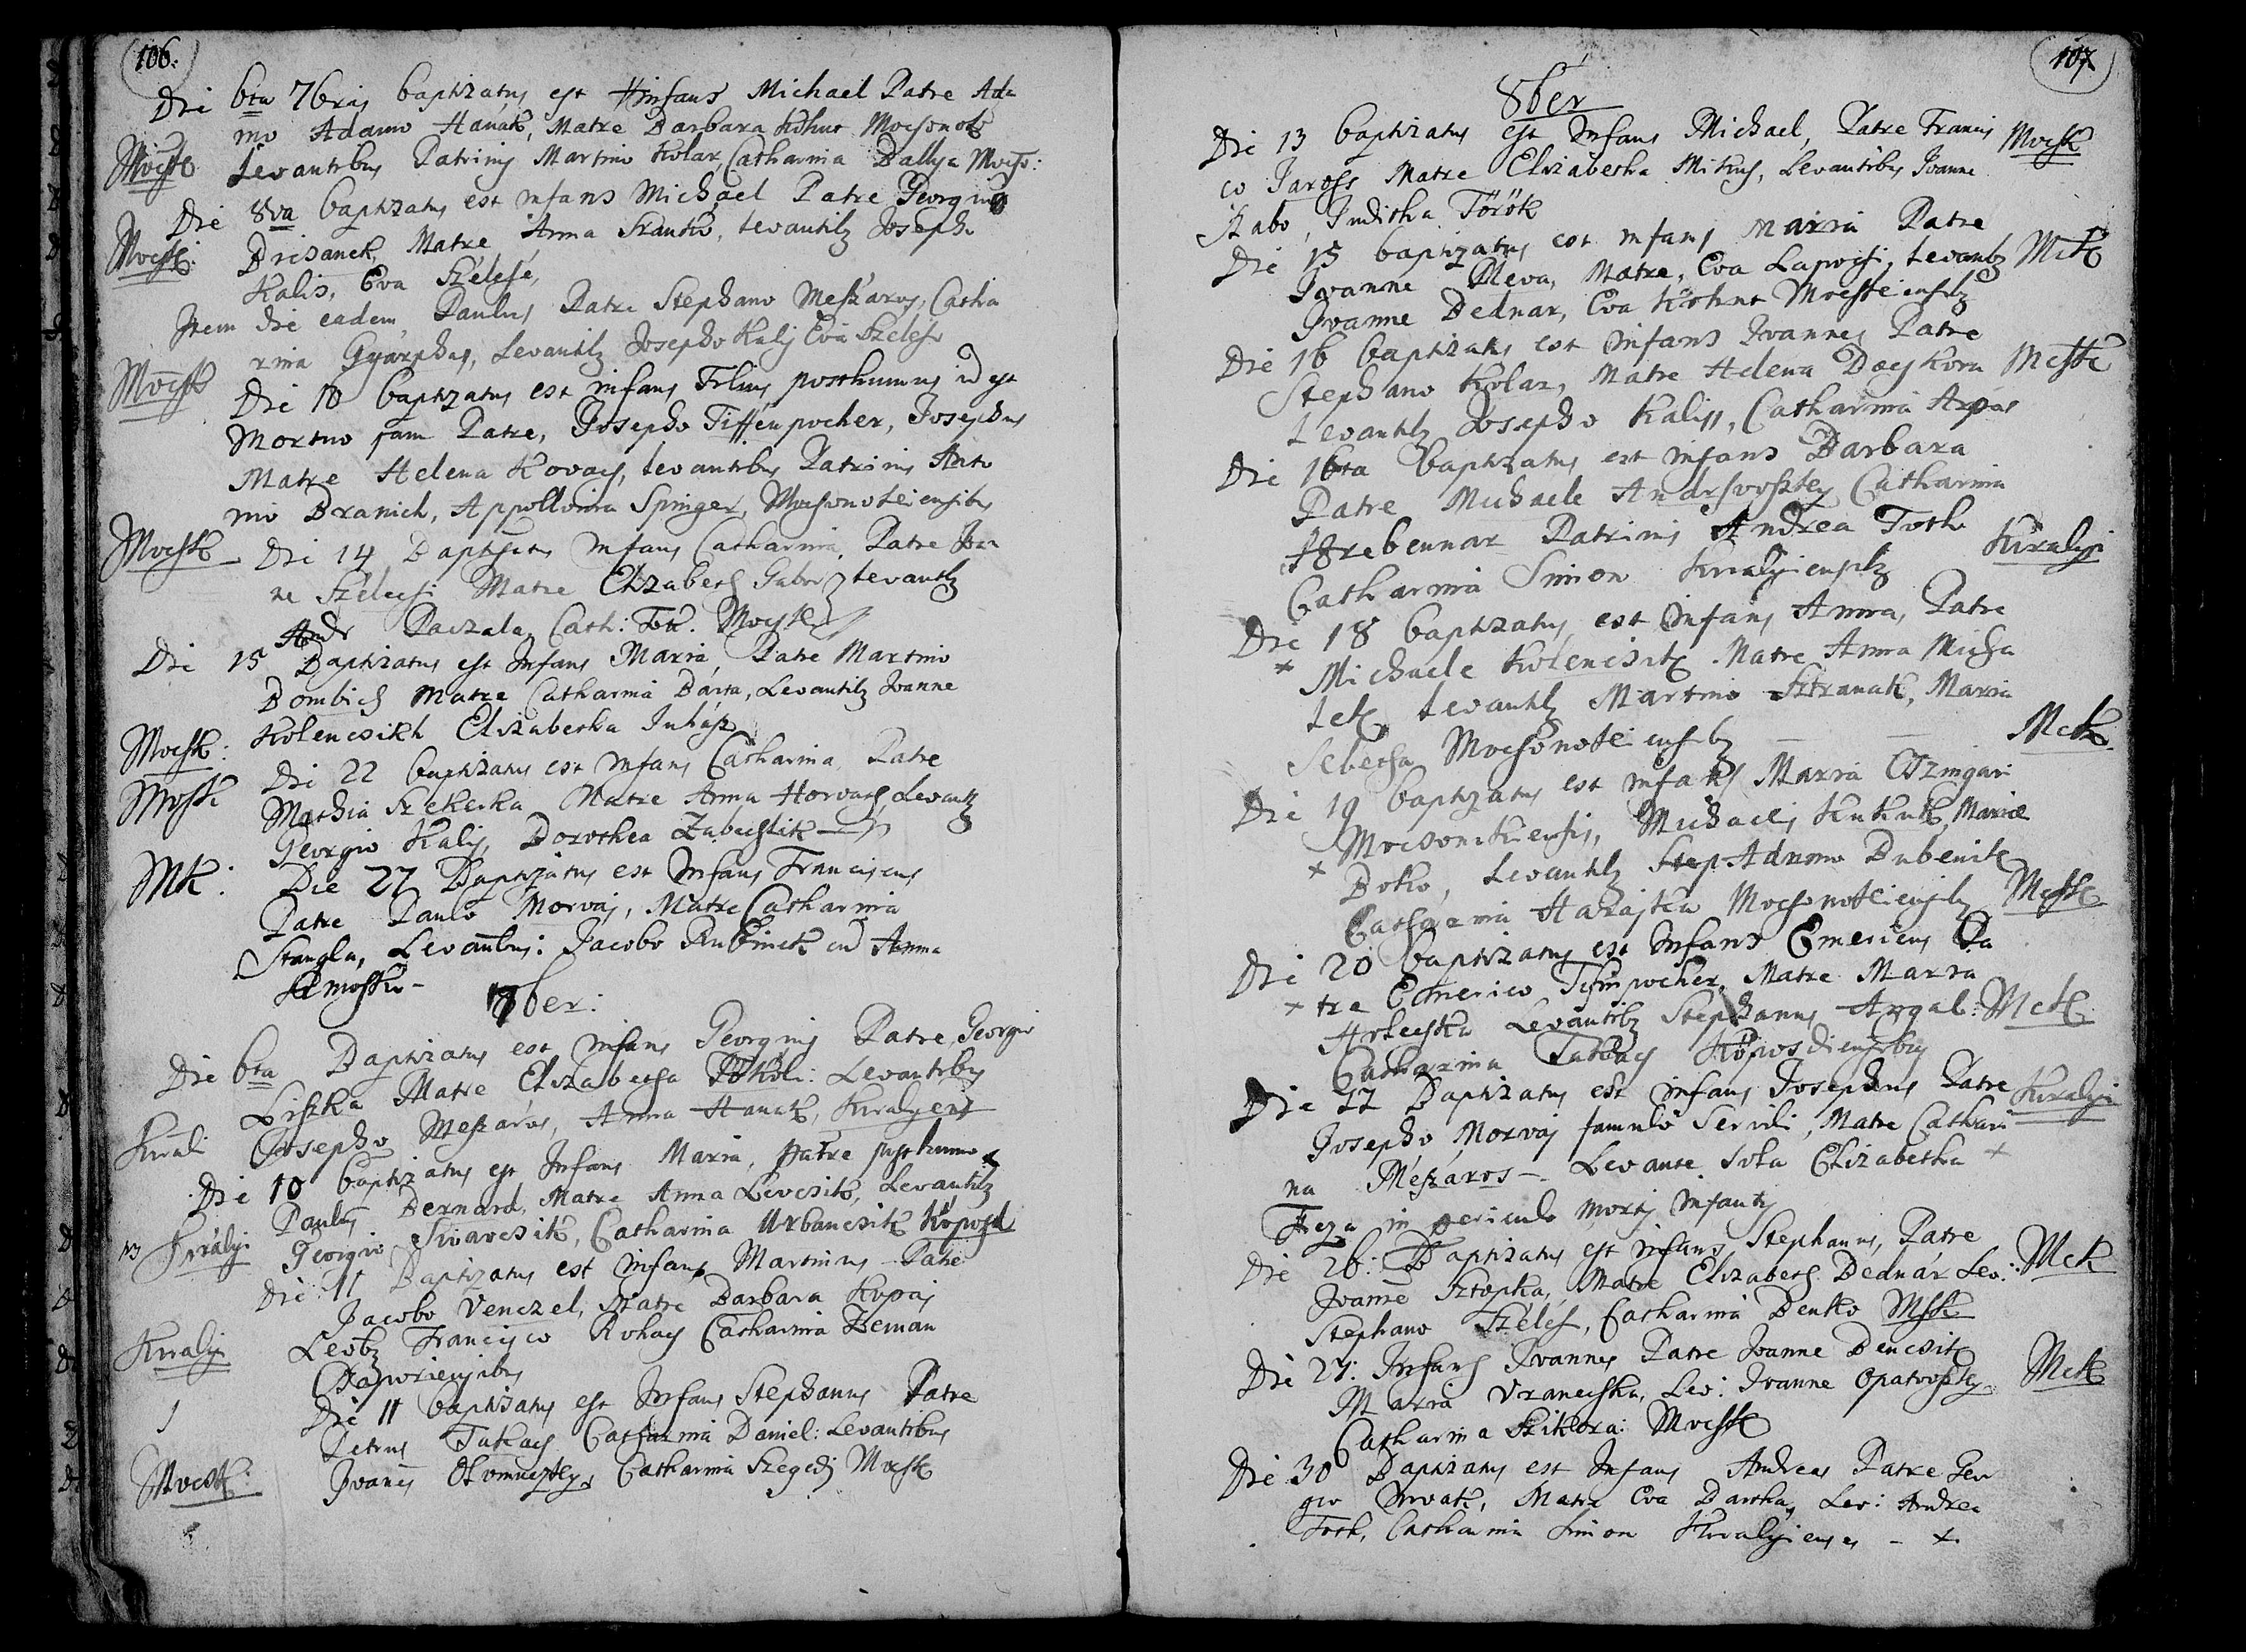 106.
Die 6ta 7bris baptizatus est Infans Michael Patre Ada
mo Adamo Hanák, Matre Barbara Kohut Mocsonok
Mocsk Levantibus Patrinis Martino Kolar, Catharina Ballya Mocso:
Die 8va baptizatus est infans Michael Patre Georgio
Mocsk: Drisanek, Matre Anna Sranko, Levantibz Joseph
Kalis, Eva Szélese,
Item die eadem Paulus Patre Stephano Meszaros, Catha
rina Gyárphas, Levantibz Josepho Kalis Eva Szelese
Mocsk Die 10 baptizatus est infans Filius posthumus id est
Mortuo jam Patre, Josepho Tiffenpocher, Josephus
Matre Helena Kovacs, Levantibus Patrinis Anto
nio Branich, Appollonia Spinger, Mocsonokiensibus
Mocsk Die 14 Baptizatus infans Catharina, Patre Joa
ne Szélecsi Matre Elizabeth Gabor, Levantbz
Andr Paczala, Cath: Mocsk
Die 15 Baptizatus est Infans Maria, Patre Martino
Dombich Matre Catharina Bárta, Levantibz Joanne
Mocsk: Kolencsikh Elizabetha Juhász
Mocsk Die 22 baptizatus est infans Catharina Patre
Mathia Szekerka Matre Anna Horvath Levantbz
Georgio Kalis, Dorothea Zabecslik
MK: Die 27 Baptizatus est Infans Franciscus
Patre Paulo Morvaj, Matre Catharina
Stangla, Levantibus: Jacobo Rubinek et Anna

8ber:
Die 6ta Baptizatus est infans Georgius Patre Georgio
Liszka Matre Elizabetha Tököli: Levantibus
Kirali Josepho Meszáros, Anna Hanak, Kiralyens
Die 10 baptizatus est Infans Maria, patre posthumo
Paulus Bernard, Matre Anna Levcsik, Levantibz
Királyi Georgio Sivarcsik, Catharina Urbancsik Köpösd
Die 11 Baptizatus est Infans Martinus Patre
Jacobo Venczel, Matre Barbara Kopaj
Kiralyi Levbz Francisco Rohacs Catharina Zeman

Die 11 baptizatus est Infans Stephanus Patre
Petrus Takacs Catharina Daniel: Levantibus
Mocsk: Joanes Catharina Szegedi Mocsk
107
8ber
Die 13 baptizatus est Infans Michael, Patre Francis Mocsk
co Jaross Matre Elizabetha Mikus, Levantibus Joanne
Szabo, Juditha Török
Die 15 baptizatus est infans Maria Patre
Joanne Pleva, Matre, Eva Lapocsi, Levantbz MCK
Joanne Bednar, Eva Kohut Mocskiensibz
Die 16 baptizatus est infans Joannes Patre
Stephano Kolar, Matre Helena Dacskora Mcsk
Levantibz Josepho Kaliss, Catharina Arpás
Die 16ta baptizatus est infans Barbara
Patre Michaele Catharina
Hrebennar Patrinis Andrea Toth Kiralyi
Catharina Simon Kiralyiensibz
Die 18 baptizatus est infans Anna, Patre
× Michaele Kolencsik Matre Anna Micha
lek Levantibz Martino Sztranak, Maria
Sebecsa Mocsonokiensibz MCK
Die 19 baptizatus est infans Maria Czingari
Mocsonokiensis, Michaelis Kukuk, Mariæ
× Botko, Levantibz Step Adamo Dubenik
Catharina Harajka Mocsonokiensibz Mcsk
Die 20 baptizatus est Infans Emericus Pa
× tre Emerico Matre Maria
Levantibz Stephanus Angal: MCK
Catharina Takacs Köposdiensibus
Die 22 Baptizatus est infans Josephus Patre Kiralyi
Josepho Morvaj famulo Servili, Matre Cathari
na Mészáros – Levante sola Elizabetha ×
Feza in periculo mortis infantis
Die 26: Baptizatus est infans Stephanus, Patre
Joanne Sztopka, Matre Elizabeth Bednár Lev: MCK
Stephano Széles, Catharina Benko Mcsk
Die 27: Infans Joannes Patre Joanne Bencsik
Maria Vranecska, Lev: Joanne Opatovszky MCK
Catharina Szikora: Mocsk
Die 30 Baptizatus est Infans Andreas Patre Geor
gio Hrvak, Matre Eva Bartha, Lev: Andrea
Toth, Catharina Simon Kiralyienses – ×